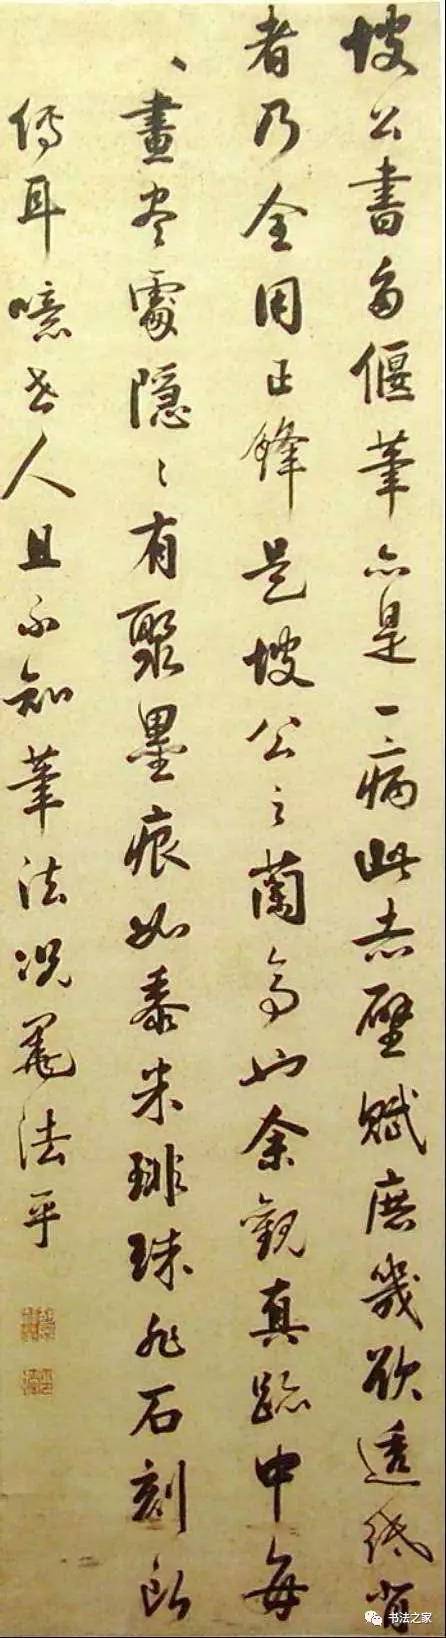 坡公書多偃筆亦是一病此赤壁賦庶幾欲透紙背
者乃全用正鋒是坡公之蘭亭也余觀真跡中每
、畫盡處隱々有聚墨痕如黍米琲珠非石刻所
傳耳噫世人且不知筆法況墨法乎
书法之家